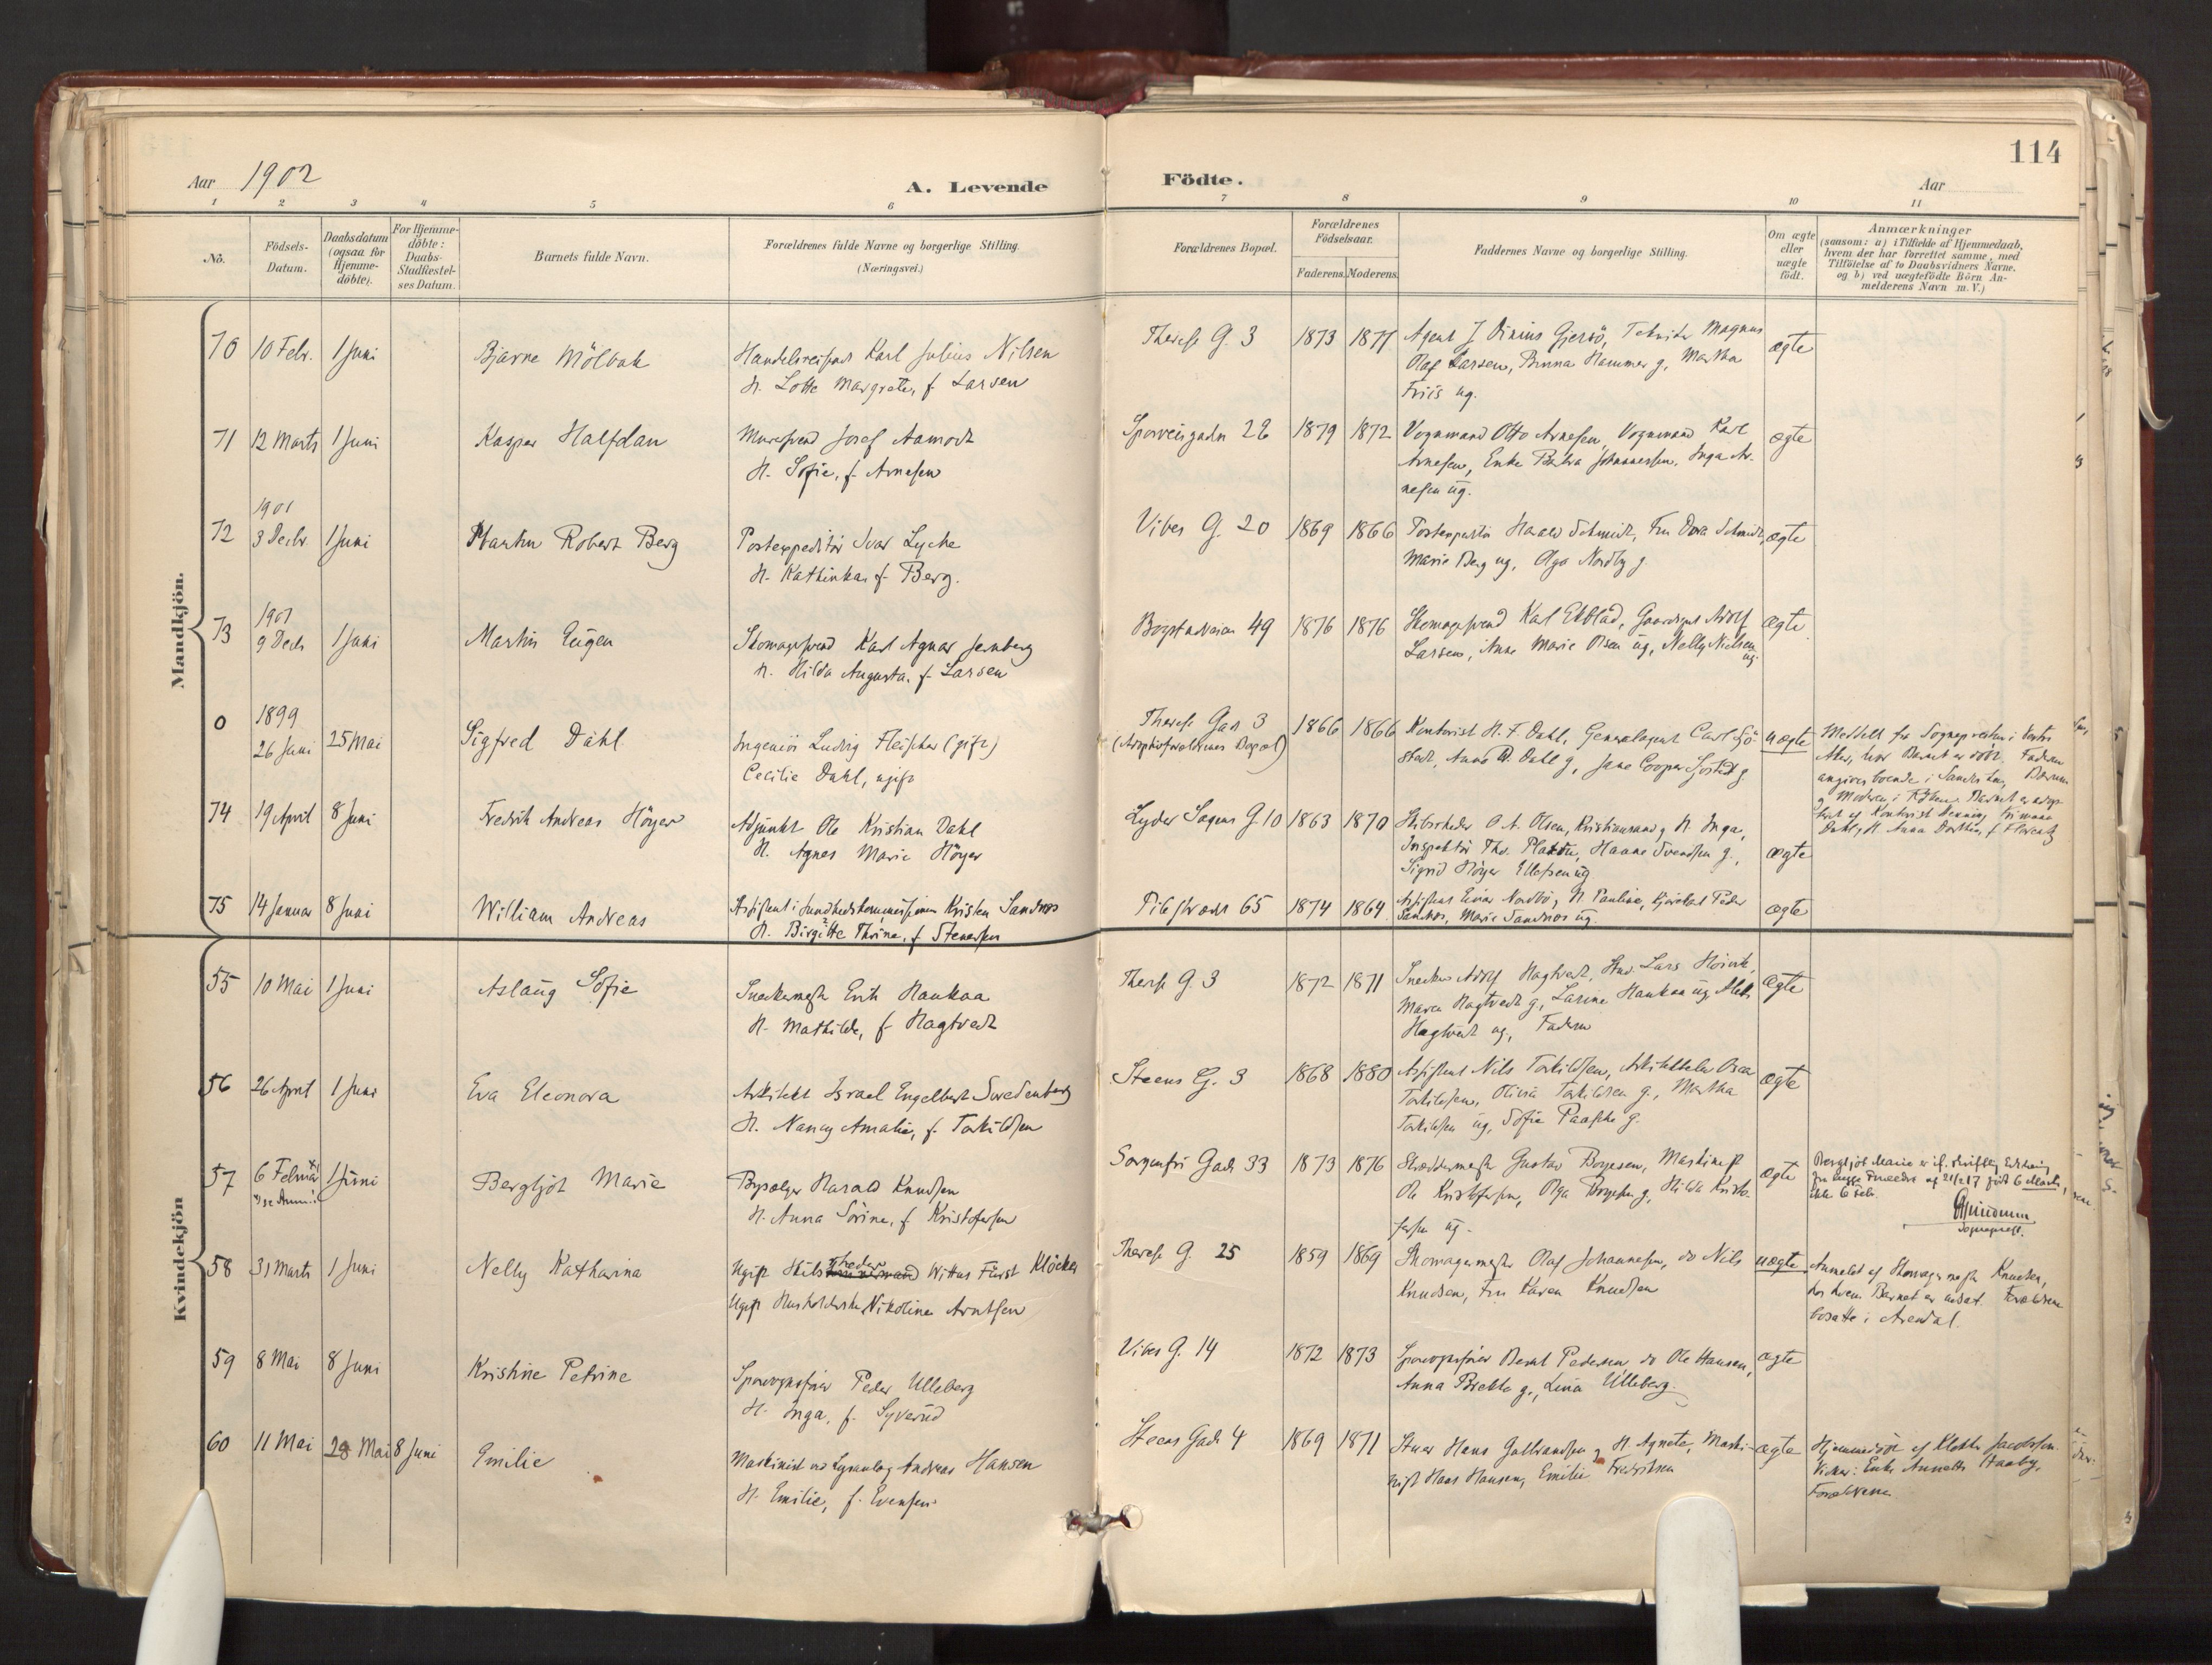 114
Aar 1902
A. Levende
Födte.
Aar
1 2 3 4 5 6 7 8 9 10 11
No.
Födsels-
Datum.
Daabsdatum
(ogsaa for
Hjemme-
döbte).
For Hjemme-
döbte:
Daabs-
Stadfæstel-
ses Datum.
Barnets fulde Navn.
Forældrenes fulde Navne og borgerlige Stilling.
(Næringsvei.)
Forældrenes Bopæl.
Forældrenes
Födselsaar.
Faderens. Moderens.
Faddernes Navne og borgerlige Stilling.
Om ægte
eller
uægte
födt.
Anmærkninger
(saasom: a) i Tilfælde af Hjemmedaab,
hvem der har forrettet samme, med
Tilföielse af to Daabsvidners Navne.
og b) ved uægtefödte Börn An-
melderens Navn m. V.)
Mandkjön.
70 10 Febr. 1 Juni
Bjarne Mölbak
Karl Julius Nilsen
H. Lotte Margrete, f. Larsen
Therese G. 3 1873 1877
Agent J. Gjersö, Magnus
Olaf Larsen, Hammer g, Martha
Friis ug.
ægte
71 12 Marts 1 Juni
Kasper Halfdan
Josef Aamodt
H. Sofie, f. Arnesen
Sporveisgaden 28 1879 1872
Vognmand Otto Arnesen, Vognmand Karl
Arnesen, Enke Johannessen, Inga Ar-
nesen ug.
ægte
1901
72 3 Decbr 1 Juni
Martin Robert Berg
Postexpeditör Ivar Lyche
H. Kathinka, f. Berg.
Vibes G. 20 1869 1866
Harald Schmidt, Fru Dora Schmidt,
Marie Berg ug, Olga Nordby g
ægte
1901
73 9 Decb 1 Juni
Martin Eugen
Karl Agnar Jernberg
H. Hilda Augusta, f. Larsen
Bogstadveien 49 1876 1876
Karl Ekblad, Adolf
Larsen, Anne Marie Olsen ug, Nelly Nielsen
ug.
ægte
1899
0 26 Juni 25 Mai
Sigfred Dahl
Ingeniör Ludvig Fleischer (gift)
Cecilie Dahl, ugift
Therese Gad 3
(Adoptivforældrenes Bopæl)
1866 1866
Kontorist H. F. Dahl, Generalagent Carl Sjö-
stedt, Anna D. Dahl g, Jane Cooper Sjöstedt g
uægte
Meddelt fra Sognepresten i Vestre
Aker, hvor Barnet er födt. Faderen
angives boende i Bærum
Moderen i Barnet er adop-
teret af Kontorist Henning
Dahl, H. Anna Dorthea, f.
74 19 April 8 Juni
Fredrik Andreas Höyer
Adjunkt Ole Kristian Dahl
H. Agnes Marie Höyer
Lyder Sagens G 10 1863 1870
Skibsreder O. A. Olsen, Kristiansand g H. Inga,
Inspektör Hanne Svendsen g.,
Sigrid Höyer Ellefsen ug
ægte
75 14 Januar 8 Juni
William Andreas
Assistent i Sundhedskommissionen Kristen Sandnes
H. Birgitte Thrine, f. Stenersen
Pilestrædet 65 1874 1864
Assistent Einar Nordbö, H. Pauline, Peder
Sandnes, Marie Sandnes ug
ægte
Kvindekjön
55 10 Mai 1 Juni
Aslaug Sofie
Snedkermester Erik Haukaa
H. Mathilde, f. Hagtvedt
Therese G. 3 1872 1871
Snedker Adolf Hagtvedt, Lars
Maren Hagtvedt g., Larine Haukaa ug
Hagtvedt ug., Faderen
ægte
56 26 April 1 Juni
Eva Eleonora
Arkitekt Israel Engelbert Svedenborg
H. Nancy Amalie, f. Torkildsen
Steens G. 3 1868 1880
Assistent Nils Torkildsen,
Torkildsen, Olivia Torkildsen g., Martha
Torkildsen ug, Sofie Paasche g.
ægte
57 6 Februar 1 Juni
x) se Anm.!
Bergljot Marie
Harald Knudsen
H. Anna Sörine, f. Kristofersen
Sorgenfri Gade 33 1873 1876
Skræddermester Gustav Borgesen, Maskinist
Ole Kristofersen, Olga Borgesen g, Hilda Kristo-
fersen ug.
ægte
Bergljot Marie er if. skriftlig Erklæring
21/2 17 född 6 Marts,
ikke 6 Feb.
Sogneprest.
58 31 Marts 1 Juni
Nelly Katharina
Ugift Wittus Fürst Klöcker
Ugift Husholderske Nikoline Arntsen
Therese G. 25 1859 1869
Skomagermester Olaf Johannesen, do Nils
Knudsen, Fru Karen Knudsen
uægte
Anmeldt af Skomagermester Knudsen,
hos hvem Barnet er udsat. Forældrene
bosatte i Arendal.
59 8 Mai 8 Juni
Kristine Petrine
Sporvognsförer Peder Ulleberg
H. Inga, f. Syverud
Vibes G. 14 1872 1873
Sporvognsförer Bernt Pedersen, do Ole Hansen,
Anna Brekke g., Lina Ulleberg.
ægte
60 11 Mai 28 Mai 8 Juni
Emilie
Maskinist ved Andreas Hansen
H. Emilie, f. Evensen
Steens Gade 4 1869 1871
Hans Gulbrandsen g H. Agnete, Maski-
nist Hans Hansen, Emilie Fredriksen
ægte
Hjemmedöbt af Klokker Jacobsen.
Vidner: Enke Annette Staaby,
Forældrene